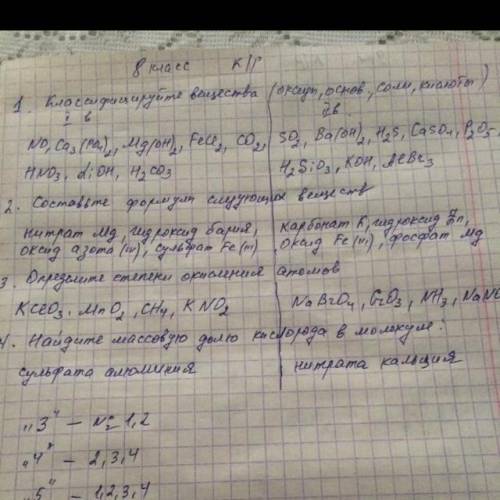 8 класс К/Р
1. Классифицируйте вещества (оксиды, основ., соли, кислоты)
I в II в
NO, Ca3(PO4)2, Mg(OH)2, FeCl2, CO2, SO2, Ba(OH)2, H2S, CaSO4, P2O5
HNO3, LiOH, H2CO3 H2SiO3, KOH, AlBr3
2. Составьте формулы следующих веществ
нитрат Mg, гидроксид бария, карбонат K, гидроксид Zn,
оксид азота (IV), сульфат Fe(III) оксид Fe(III), фосфат Mg
3. Определите степени окисления атомов
KClO3, MnO2, CH4, KNO2 NaBrO4, CrO3, NH3, NaNO
4. Найдите массовую долю кислорода в молекуле:
сульфата алюминия нитрата кальция
„3" – № 1,2
„4" – 2,3,4
„5" – 1,2,3,4